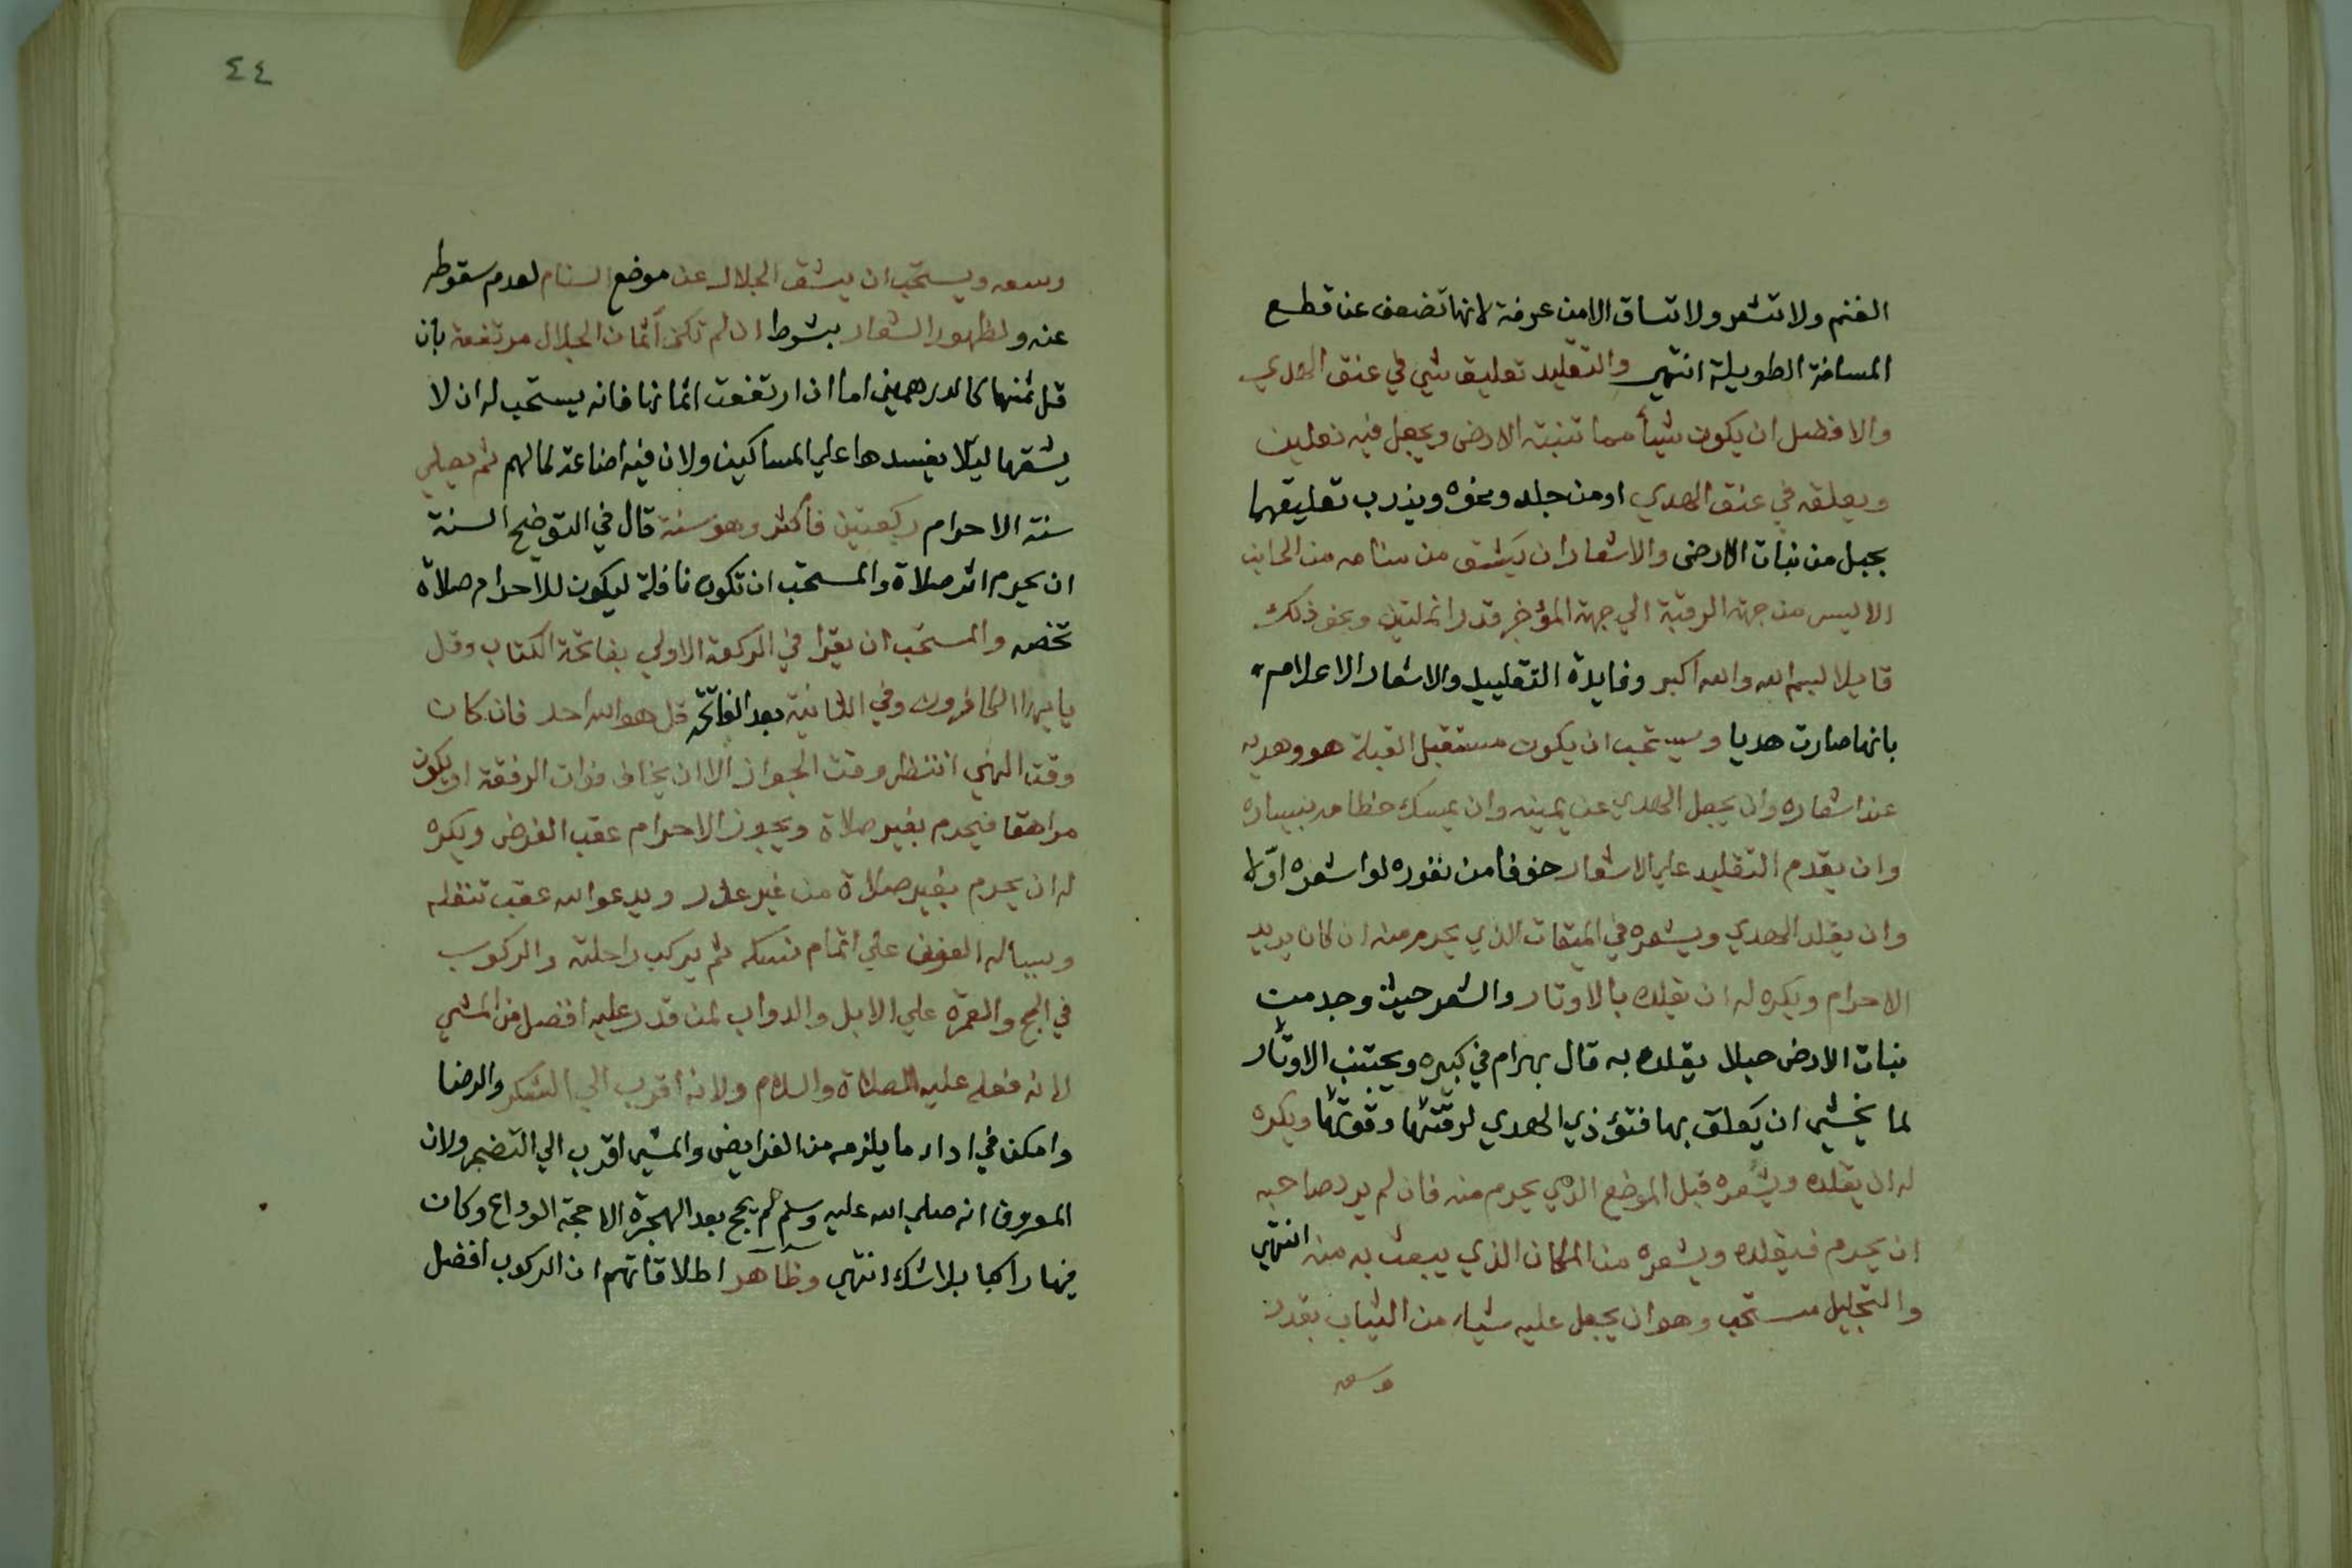 الغنم ولا تشعر ولا تساق الا من عرفة لانها تضعف عن قطع
المسافة الطويلة انتهى والتقليد تعليق شي في عنق الهدي
والافضل ان يكون شيأ مما تنبته الارض ويجعل فيه نعلين
ويعلقه في عنق الهدي او من جلد ونحوه ويندب تعليقهما
بحبل من نبات الارض والاشعار ان يشق من سنامه من الجانب
الايسر من جهة الرقبة الي جهة المؤخر قدر انملتين ونحو ذلك
قايلا بسم الله والله اكبر وفايدة التقليد والاشعار الاعلام
بانها صارت هديا ويستحب ان يكون مستقبل القبلة هو وهديه
عند اشعاره وان يجعل الهدي عن يمينه وان يمسك خطامه بيساره
وان يقدم التقليد علي الاشعار خوفا من نفوره لو اشعره اولا
وان يقلد الهدي ويشعره في الميقات الذي يحرم منه ان كان يريد
الاحرام ويكره له ان يقلده بالاوتار والشعر حيث وجد من
نبات الارض حبلا يقلده به قال بهرام في كبيره ويجتنب الاوتار
لما يخشي ان يعلق بها فتؤذي الهدي لرقتها وقوتها ويكره
له ان يقلده ويشعره قبل الموضع الذي يحرم منه فان لم يرد صاحبه
ان يحرم فيقلده ويشعره من المكان الذي يبعث به منه انتهي
والتجليل مستحب وهو ان يجعل عليه شيا من الثياب بقدر
وسعه
٤٤
وسعه ويستحب ان يشق الجلال عن موضع السنام لعدم سقوطه
عنه ولظهور الشعار بشرط ان لم تكن أثمان الجلال مرتفعة بان
قل ثمنها كالدرهمين اما ان ارتفعت اثمانها فانه يستحب له ان لا
يشقها ليلا يفسدها علي المساكين ولان فيه اضاعة لمالهم ثم يصلي
سنة الاحرام ركعتين فأكثر وهو سنة قال في التوضيح السنة
ان يحرم اثر صلاة والمستحب ان تكون نافلة ليكون للاحرام صلاة
تخصه والمستحب ان يقرا في الركعة الاولي بفاتحة الكتاب وقل
يا ايها الكافرون وفي الثانية بعد الفاتحة قل هو الله احد فان كان
وقت النهي انتظر وقت الجواز الا ان يخاف فوات الرفقة او يكون
مراهقا فيحرم بغير صلاة ويجوز الاحرام عقب الفرض ويكره
له ان يحرم بغير صلاة من غير عذر ويدعو الله عقب تنفله
ويساله العون علي اتمام نسكه ثم يركب راحلته والركوب
في الحج والعمرة علي الابل والدواب لمن قدر عليه افضل من المشي
لانه فعله عليه الصلاة والسلام ولانه اقرب الي الشكر والرضا
وامكن في اداء ما يلزمه من الفرايض والمشي اقرب الي التضجر ولان
المعروف انه صلي الله عليه وسلم لم يحج بعد الهجرة الا حجة الوداع وكان
فيها راكبا بلا شك انتهي وظاهر اطلاقاتهم ان الركوب افضل